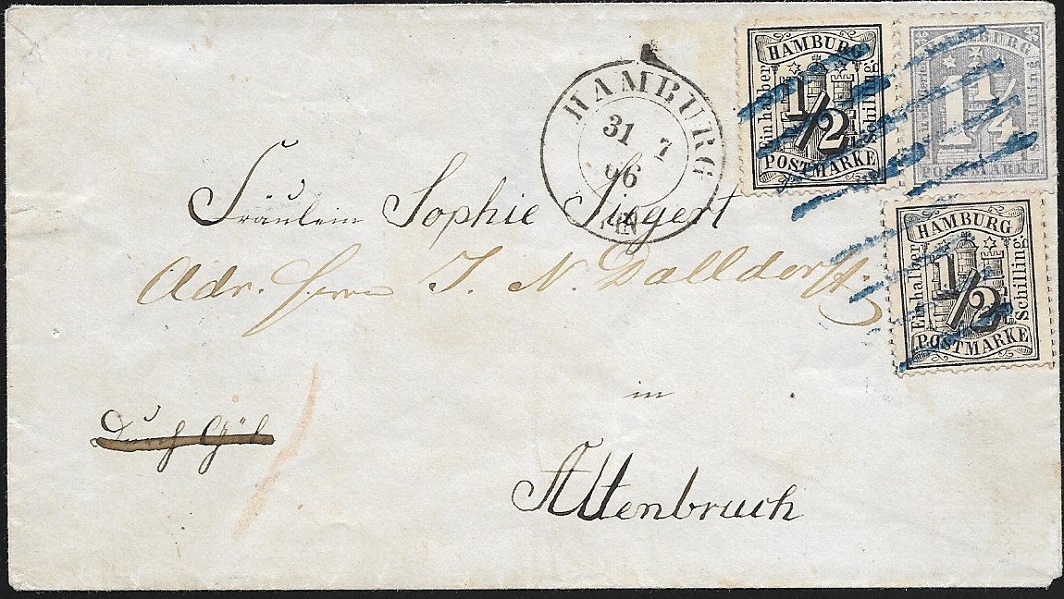 HAMBURG
31 7
66
HAMBURG
Ein halber
1/2
Schilling
POSTMARKE
HAMBURG
1 1/4
Schilling
POSTMARKE
Fräulein Sophie Siegert
Adr. Herrn J. N. Dalldorff
HAMBURG
Ein halber
1/2
Schilling
POSTMARKE
in
Durch
Altenbruch